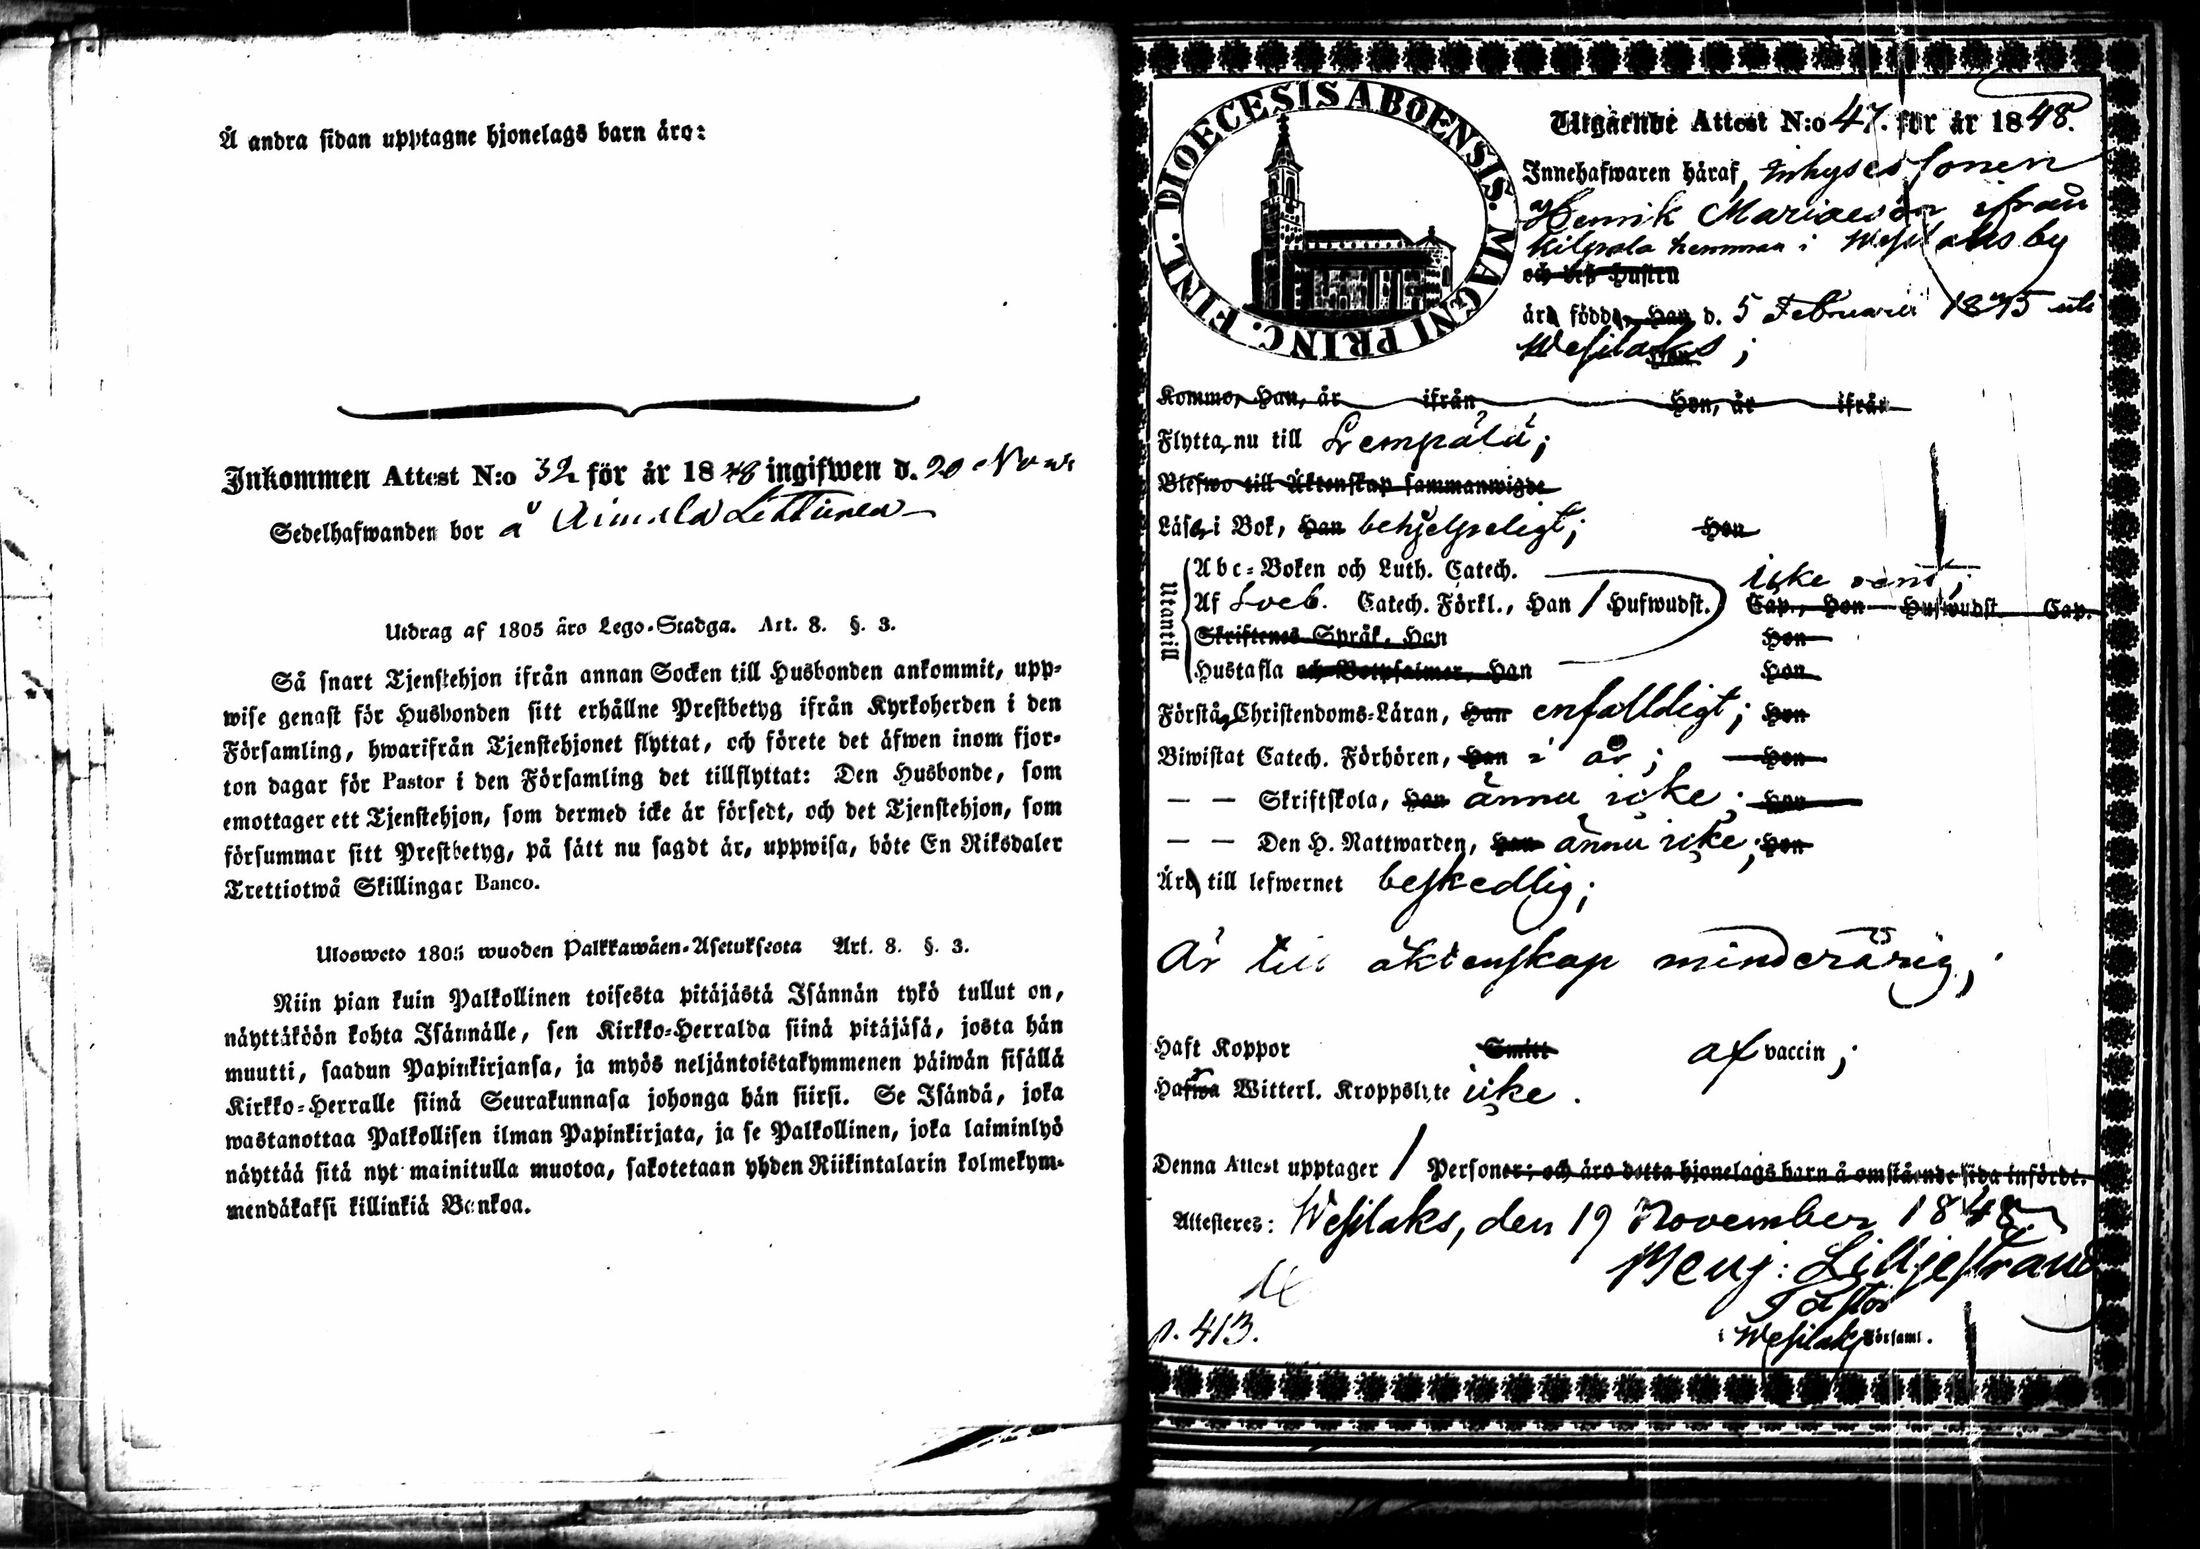 Å andra sidan upptagne hjonelags barn äro:
Inkommen Attest N:o 32 för år 1848 ingifwen d. 20 Novr
Sedelhafwanden bor å
Utdrag af 1805 års Lego-Stadga. Art. 8. §. 3.
Så snart Tjenstehjon ifrån annan Socken till Husbonden ankommit, upp-
wise genast för Husbonden sitt erhållne Prestbetyg ifrån Kyrkoherden i den
Församling, hwarifrån Tjenstehjonet flyttat, och förete det äfwen inom fjor-
ton dagar för Pastor i den Församling det tillflyttat: Den Husbonde, som
emottager ett Tjenstehjon, som dermed icke är försedt, och det Tjenstehjon, som
försummar sitt Prestbetyg, på sätt nu sagdt är, uppwisa, böte En Riksdaler
Trettiotwå Skillingar Banco.
Ulosweto 1805 wuoden Palkkawäen-Asetuksesta Art. 8. §. 3.
Niin pian kuin Palkollinen toisesta pitäjästä Isännän tykö tullut on,
näyttäköön kohta Isännälle, sen Kirkko-Herralda siinä pitäjäsä, josta hän
muutti, saadun Papinkirjansa, ja myös neljäntoistakymmenen päiwän sisällä
Kirkko-Herralle siinä Seurakunnasa johonga hän siirsi. Se Isändä, joka
wastanottaa Palkollisen ilman Papinkirjata, ja se Palkollinen, joka laiminlyö
näyttää sitä nyt mainitulla muotoa, sakotetaan yhden Riikintalarin kolmekym-
mendäkaksi killinkiä Bankoa.
DIOECESIS ABOENSIS. MAGNI PRINC. FINL.
Utgående Attest N:o 47. för år 1848.
Innehafwaren häraf, inhyses sonen
Henrik Mariaeson ifrån
hemman i Wesilaks by
och dess Hustru
äro födde, Han d. 5 Februarii 1835 uti
Wesilaks;
Hon
Kommo, Han, år ifrån Hon, år ifrån
Flytta nu till Lempälä;
Blefwo till Äktenskap sammanwigde
Läsa i Bok, Han behjelpeligt; Hon
Utantill
Abc-Boken och Luth. Catech.
icke rent;
Af Sveb. Catech. Förkl., Han 1 Hufwudst. Cap., Hon Hufwudst. Cap.
Skriftenes Språk, Han Hon
Hustafla och Botpsalmer, Han Hon
Förstå Christendoms-Läran, Han enfalldigt; Hon
Biwistat Catech. Förhören, Han i år; Hon
— — Skriftskola, Han ännu icke; Hon
— — Den H. Nattwarden, Han ännu icke; Hon
Äro till lefwernet beskedlig;
Är till äktenskap minderårig;
Haft Koppor Smitt af vaccin;
Hafwa Witterl. Kroppslyte icke.
Denna Attest upptager 1 Personer; och äro detta hjonelags barn å omstående sida införde.
Attesteres: Wesilaks, den 19 November 1848.
Benj: Lilljestrand
Pastor
p. 413.
i Wesilaks Församl.